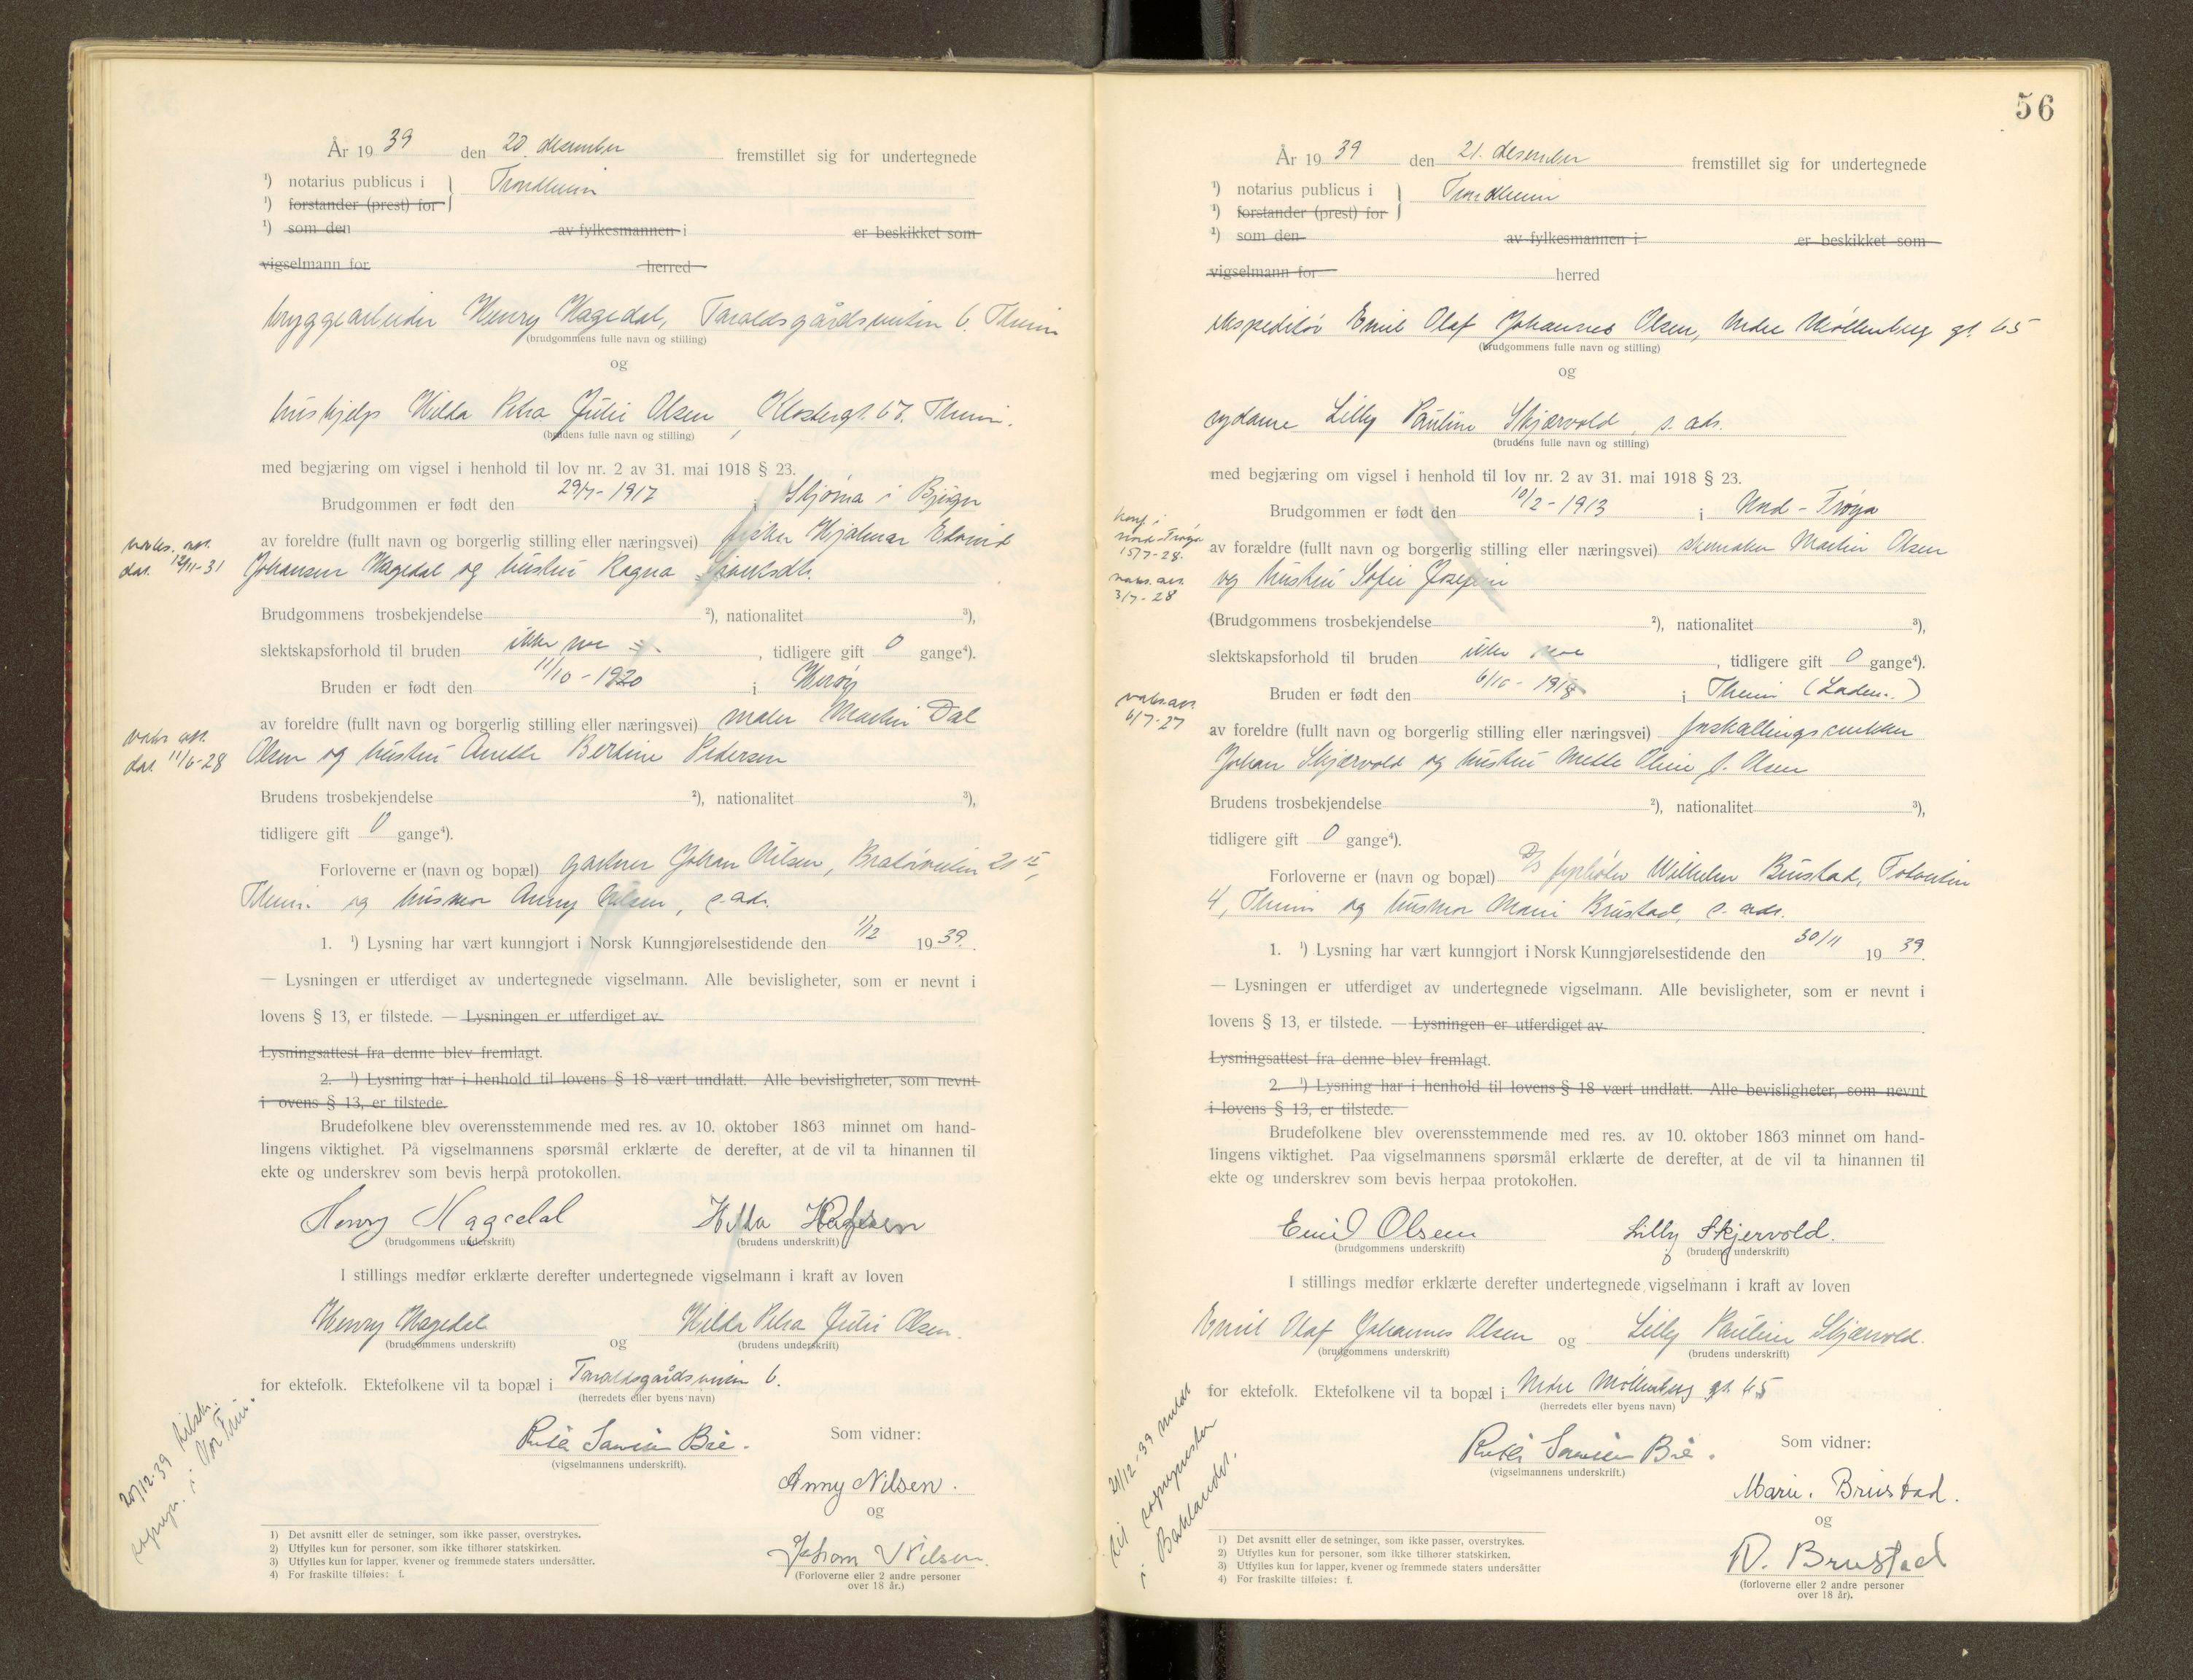 År 19 39 den 20. desember fremstillet sig for undertegnede
1) notarius publicus i } Trondheim
1) forstander (prest) for
1) som den av fylkesmannen i er beskikket som
vigselmann for herred
bryggearbeider Henry Hagedal, Taraldsgårdsveien 6. Theim
(brudgommens fulle navn og stilling)
og
hushjelp Hilda Petra Julie Olsen, Klostergt. 67. Theim.
(brudens fulle navn og stilling)
med begjæring om vigsel i henhold til lov nr. 2 av 31. mai 1918 § 23.
Brudgommen er født den 29/7-1917 i Bjugn
av foreldre (fullt navn og borgerlig stilling eller næringsvei) fisker Hjalmar Edvind
vaks. att.
dat. 12/11-31
Johansen Hagedal og hustru Ragna
Brudgommens trosbekjendelse 2), nationalitet 3),
slektskapsforhold til bruden ikke noe , tidligere gift 0 gange4).
Bruden er født den 11/10-1920 i Herøy
av foreldre (fullt navn og borgerlig stilling eller næringsvei) maler Martin Dal
vaks att.
dat 11/6-28
Olsen og hustru Anette Bertine Pedersen
Brudens trosbekjendelse 2), nationalitet 3),
tidligere gift 0 gange4).
Forloverne er (navn og bopæl) gartner Johan Nilsen, Bratsbergveien 20 II,
Theim. og husmor Anny Nilsen, s. adr.
1. 1) Lysning har vært kunngjort i Norsk Kunngjørelsestidende den 1/12 1939.
— Lysningen er utferdiget av undertegnede vigselmann. Alle bevisligheter, som er nevnt i
lovens § 13, er tilstede. — Lysningen er utferdiget av
Lysningsattest fra denne blev fremlagt.
2. 1) Lysning har i henhold til lovens § 18 vært undlatt. Alle bevisligheter, som nevnt
i ovens § 13, er tilstede.
Brudefolkene blev overensstemmende med res. av 10. oktober 1863 minnet om hand-
lingens viktighet. På vigselmannens spørsmål erklærte de derefter, at de vil ta hinannen til
ekte og underskrev som bevis herpå protokollen.
Henry Hagedal Hilda
(brudgommens underskrift) (brudens underskrift)
I stillings medfør erklærte derefter undertegnede vigselmann i kraft av loven
Henry Hagedal og Hilda Petra Julie Olsen.
(brudgommens underskrift) (brudens underskrift)
for ektefolk. Ektefolkene vil ta bopæl i Taraldsgårdsveien 6.
(herredets eller byens navn)
20/12-39 tilskr.
sognepr. i Vor Frue.
Bie.
(vigselmannens underskrift).
Som vidner:
Anny Nilsen.
og
Johan Nilsen.
(Forloverne eller 2 andre personer
over 18 år.)
1) Det avsnitt eller de setninger, som ikke passer, overstrykes.
2) Utfylles kun for personer, som ikke tilhører statskirken.
3) Utfylles kun for lapper, kvener og fremmede staters undersåtter.
4) For fraskilte tilføies: f.
56
År 19 39 den 21. desember fremstillet sig for undertegnede
1) notarius publicus i } Trondheim
1) forstander (prest) for
1) som den av fylkesmannen i er beskikket som
vigselmann for herred
ekspeditør Emil Olaf Johannes Olsen, Nedre Møllenberg gt. 65
(brudgommens fulle navn og stilling)
og
sydame Lilly Pauline Skjærvold, s. adr.
(brudens fulle navn og stilling)
med begjæring om vigsel i henhold til lov nr. 2 av 31. mai 1918 § 23.
Brudgommen er født den 10/2-1913 i Nord-Frøya
konf. i
Nord-Frøya
15/7-28.
vaks. att.
3/7-28
av forældre (fullt navn og borgerlig stilling eller næringsvei) skomaker Martin Olsen
og hustru Sofie Josefine
(Brudgommens trosbekjendelse 2), nationalitet 3),
slektskapsforhold til bruden ikke noe , tidligere gift 0 gange4).
Bruden er født den 6/10-1918 i Theim (Laden..)
vaks. att.
6/7-27
av foreldre (fullt navn og borgerlig stilling eller næringsvei) forskallingssnekker
Johan Skjærvold og hustru Mette Oline f. Olsen
Brudens trosbekjendelse 2), nationalitet 3),
tidligere gift 0 gange4).
Forloverne er (navn og bopæl) D/S fyrbøter Wilhelm Brustad,
4, Theim og husmor Marie Brustad, s. adr.
1. 1) Lysning har vært kunngjort i Norsk Kunngjørelsestidende den 30/11 1939.
— Lysningen er utferdiget av undertegnede vigselmann. Alle bevisligheter, som er nevnt i
lovens § 13, er tilstede. — Lysningen er utferdiget av
Lysningsattest fra denne blev fremlagt.
2. 1) Lysning har i henhold til lovens § 18 vært undlatt. Alle bevisligheter, som nevnt
i lovens § 13, er tilstede.
Brudefolkene blev overensstemmende med res. av 10. oktober 1863 minnet om hand-
lingens viktighet. Paa vigselmannens spørsmål erklærte de derefter, at de vil ta hinannen til
ekte og underskrev som bevis herpaa protokollen.
Emil Olsen Lilly Skjervold.
(brudgommens underskrift) (brudens underskrift)
I stillings medfør erklærte derefter undertegnede vigselmann i kraft av loven
Emil Olaf Johannes Olsen og Lilly Pauline Skjærvold.
(brudgommens underskrift) (brudens underskrift)
for ektefolk. Ektefolkene vil ta bopæl i Nedre Møllenberg gt. 65
(herredets eller byens navn)
21/12-39 meldt
til sognepresten
i Bakklandet.
Bie.
(vigselmannens underskrift.)
Som vidner:
Marie. Brustad.
og
W. Brustad
(forloverne eller 2 andre personer
over 18 år).
1) Det avsnitt eller de setninger, som ikke passer, overstrykes.
2) Utfylles kun for personer, som ikke tilhører statskirken.
3) Utfylles kun for lapper, kvener og fremmede staters undersåtter
4) For fraskilte tilføies: f.